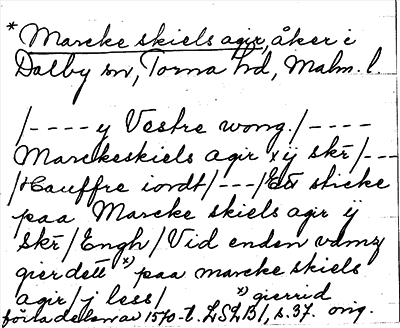 * Marcke skiels agir, åker i
Dalby sn, Torna hd, Malm. l.
/---- y Vestre wong. /----
Marckeskiels agir xij skr/---
/Hauffre iordt/---/Ett sticke
paa Marcke skiels agir ij
skr/Engh/Vid enden vdmz
gierdett *) paa marcke skiels
agir/j less/ *) gierrid
förladelsvar 1570-t. LSLB1, s.37. orig.